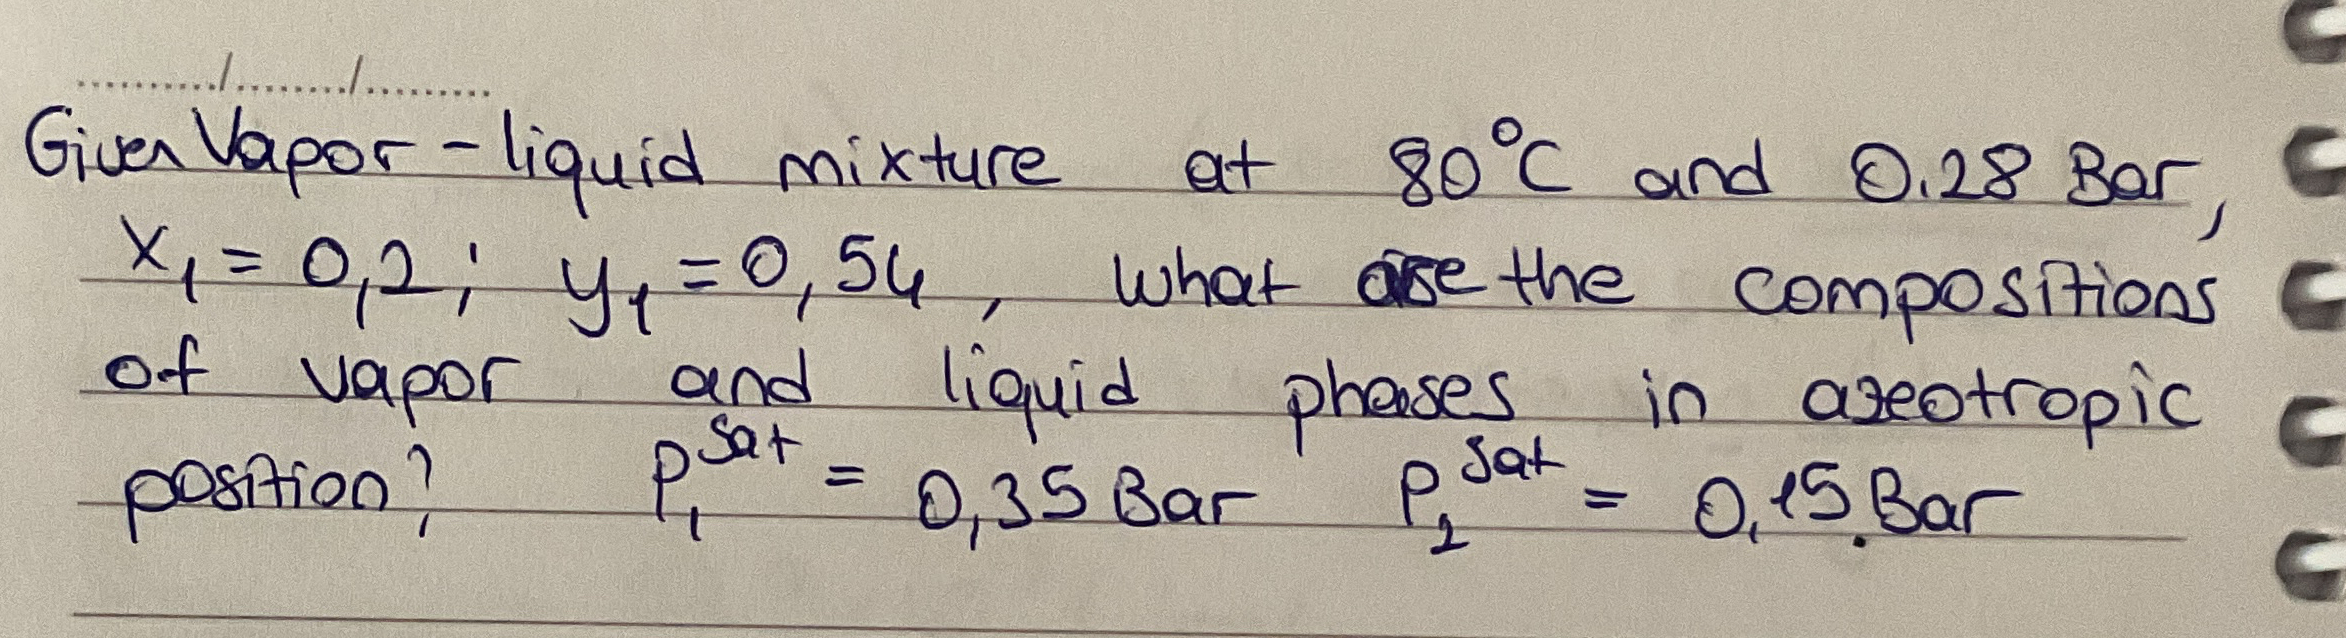 ........./........./.........
Given Vapor-liquid mixture at 80°C and 0.28 Bar,
x₁ = 0,2; y₁ = 0,54, what are the compositions
of vapor and liquid phases in azeotropic
position? P₁^Sat = 0,35 Bar P₂^Sat = 0,15 Bar